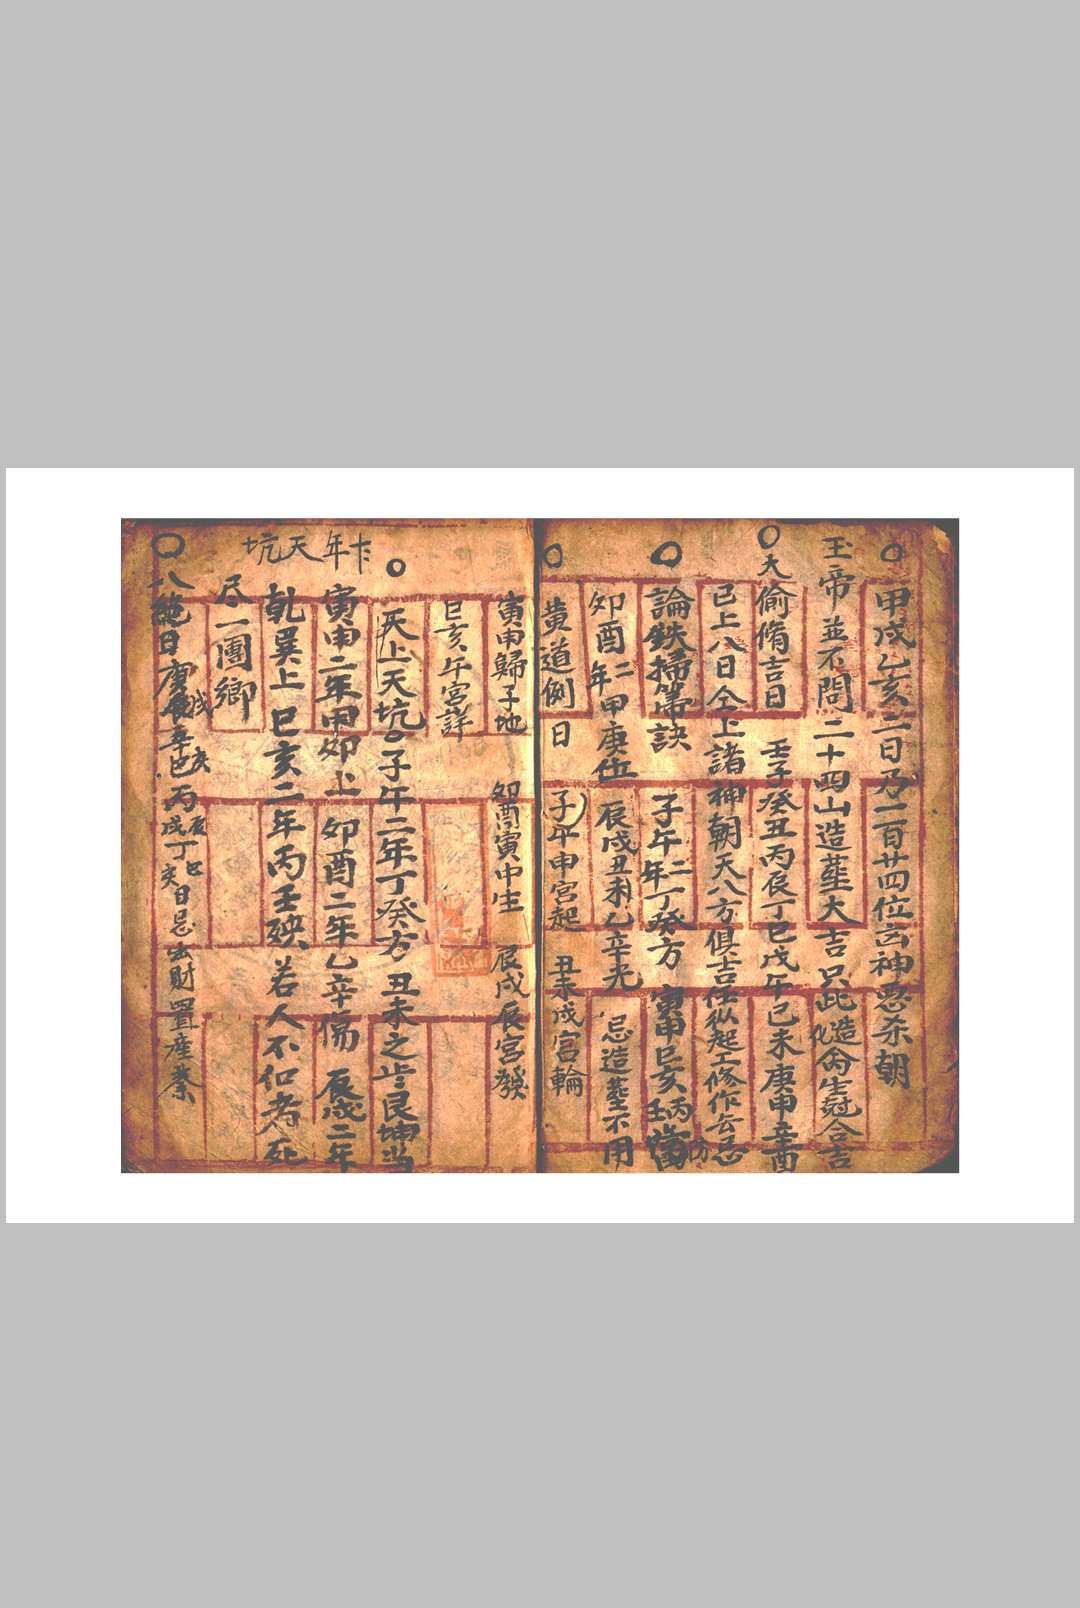 甲戌乙亥二日乃一百廿四位凶神惡杀朝
玉帝並不問二十四山造𦵏大吉只此造化禽生冠合吉
大偷脩吉日 壬子癸丑丙辰丁巳戊午己未庚申辛酉
已上八日仝上諸神朝天八方俱吉任从起工修作云忌
論鉄掃箒訣 子午二年丁癸方 寅申巳亥壬丙
卯酉二年甲庚位 辰戌丑未乙辛光 忌造𦵏不用
黃道例日 子午申宮起 丑未戌宮輪
寅申歸子地 卯酉寅中生 辰戌辰宮發
巳亥午宮詳
天上天坑 子午二年丁癸方 丑未之年艮坤当
年天坑
寅申二年甲卯上 卯酉二年乙辛傷 辰戌二年
乾巽上 巳亥二年丙壬殃 若人不仅者死
尽一團鄉
八絕日庚辰戌辛巳亥丙戌辰丁亥巳日忌出財置產業